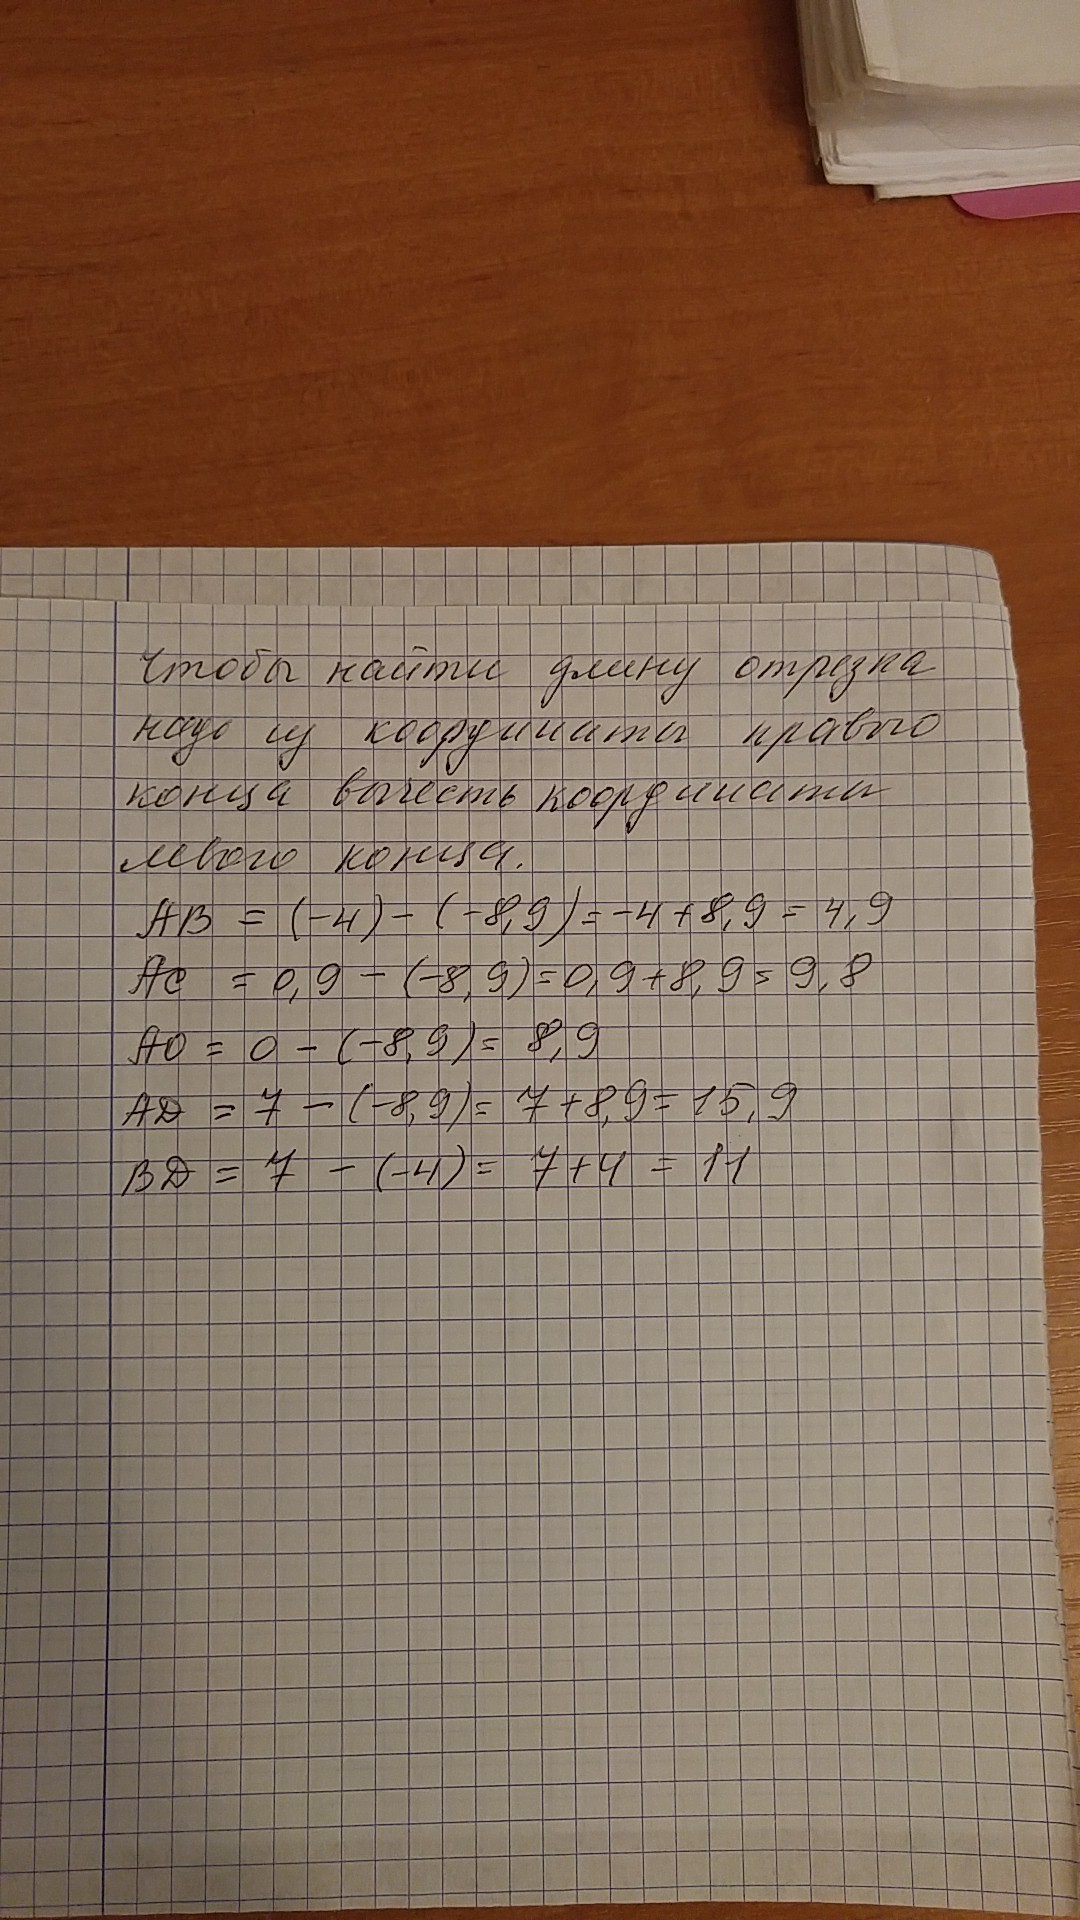 Чтобы найти длину отрезка
надо из координаты правого
конца вычесть координаты
левого конца.
AB = (-4) - (-8,9) = -4 + 8,9 = 4,9
AC = 0,9 - (-8,9) = 0,9 + 8,9 = 9,8
AO = 0 - (-8,9) = 8,9
AD = 7 - (-8,9) = 7 + 8,9 = 15,9
BD = 7 - (-4) = 7 + 4 = 11